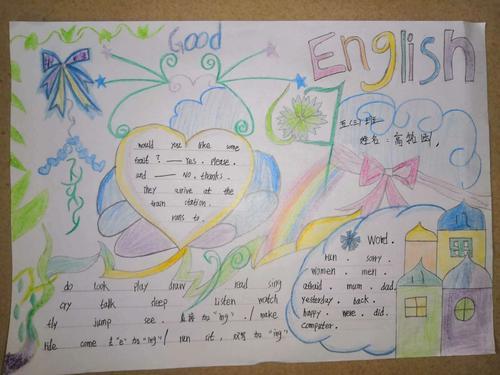 Good
English
五(三)班
姓名:高
would you like some
fruit? —— Yes. Please.
and —— NO. thanks.
They arrive at the
train station.
runs to.
Word.
run sorry.
women. men.
afraid. mum. dad.
yesterday. back.
happy. were. did.
computer.
do look play draw read sing
cry talk sleep listen watch
fly jump see. 直接加"ing"./make
ride come 去"e"加"ing"/run sit, 双写加"ing"